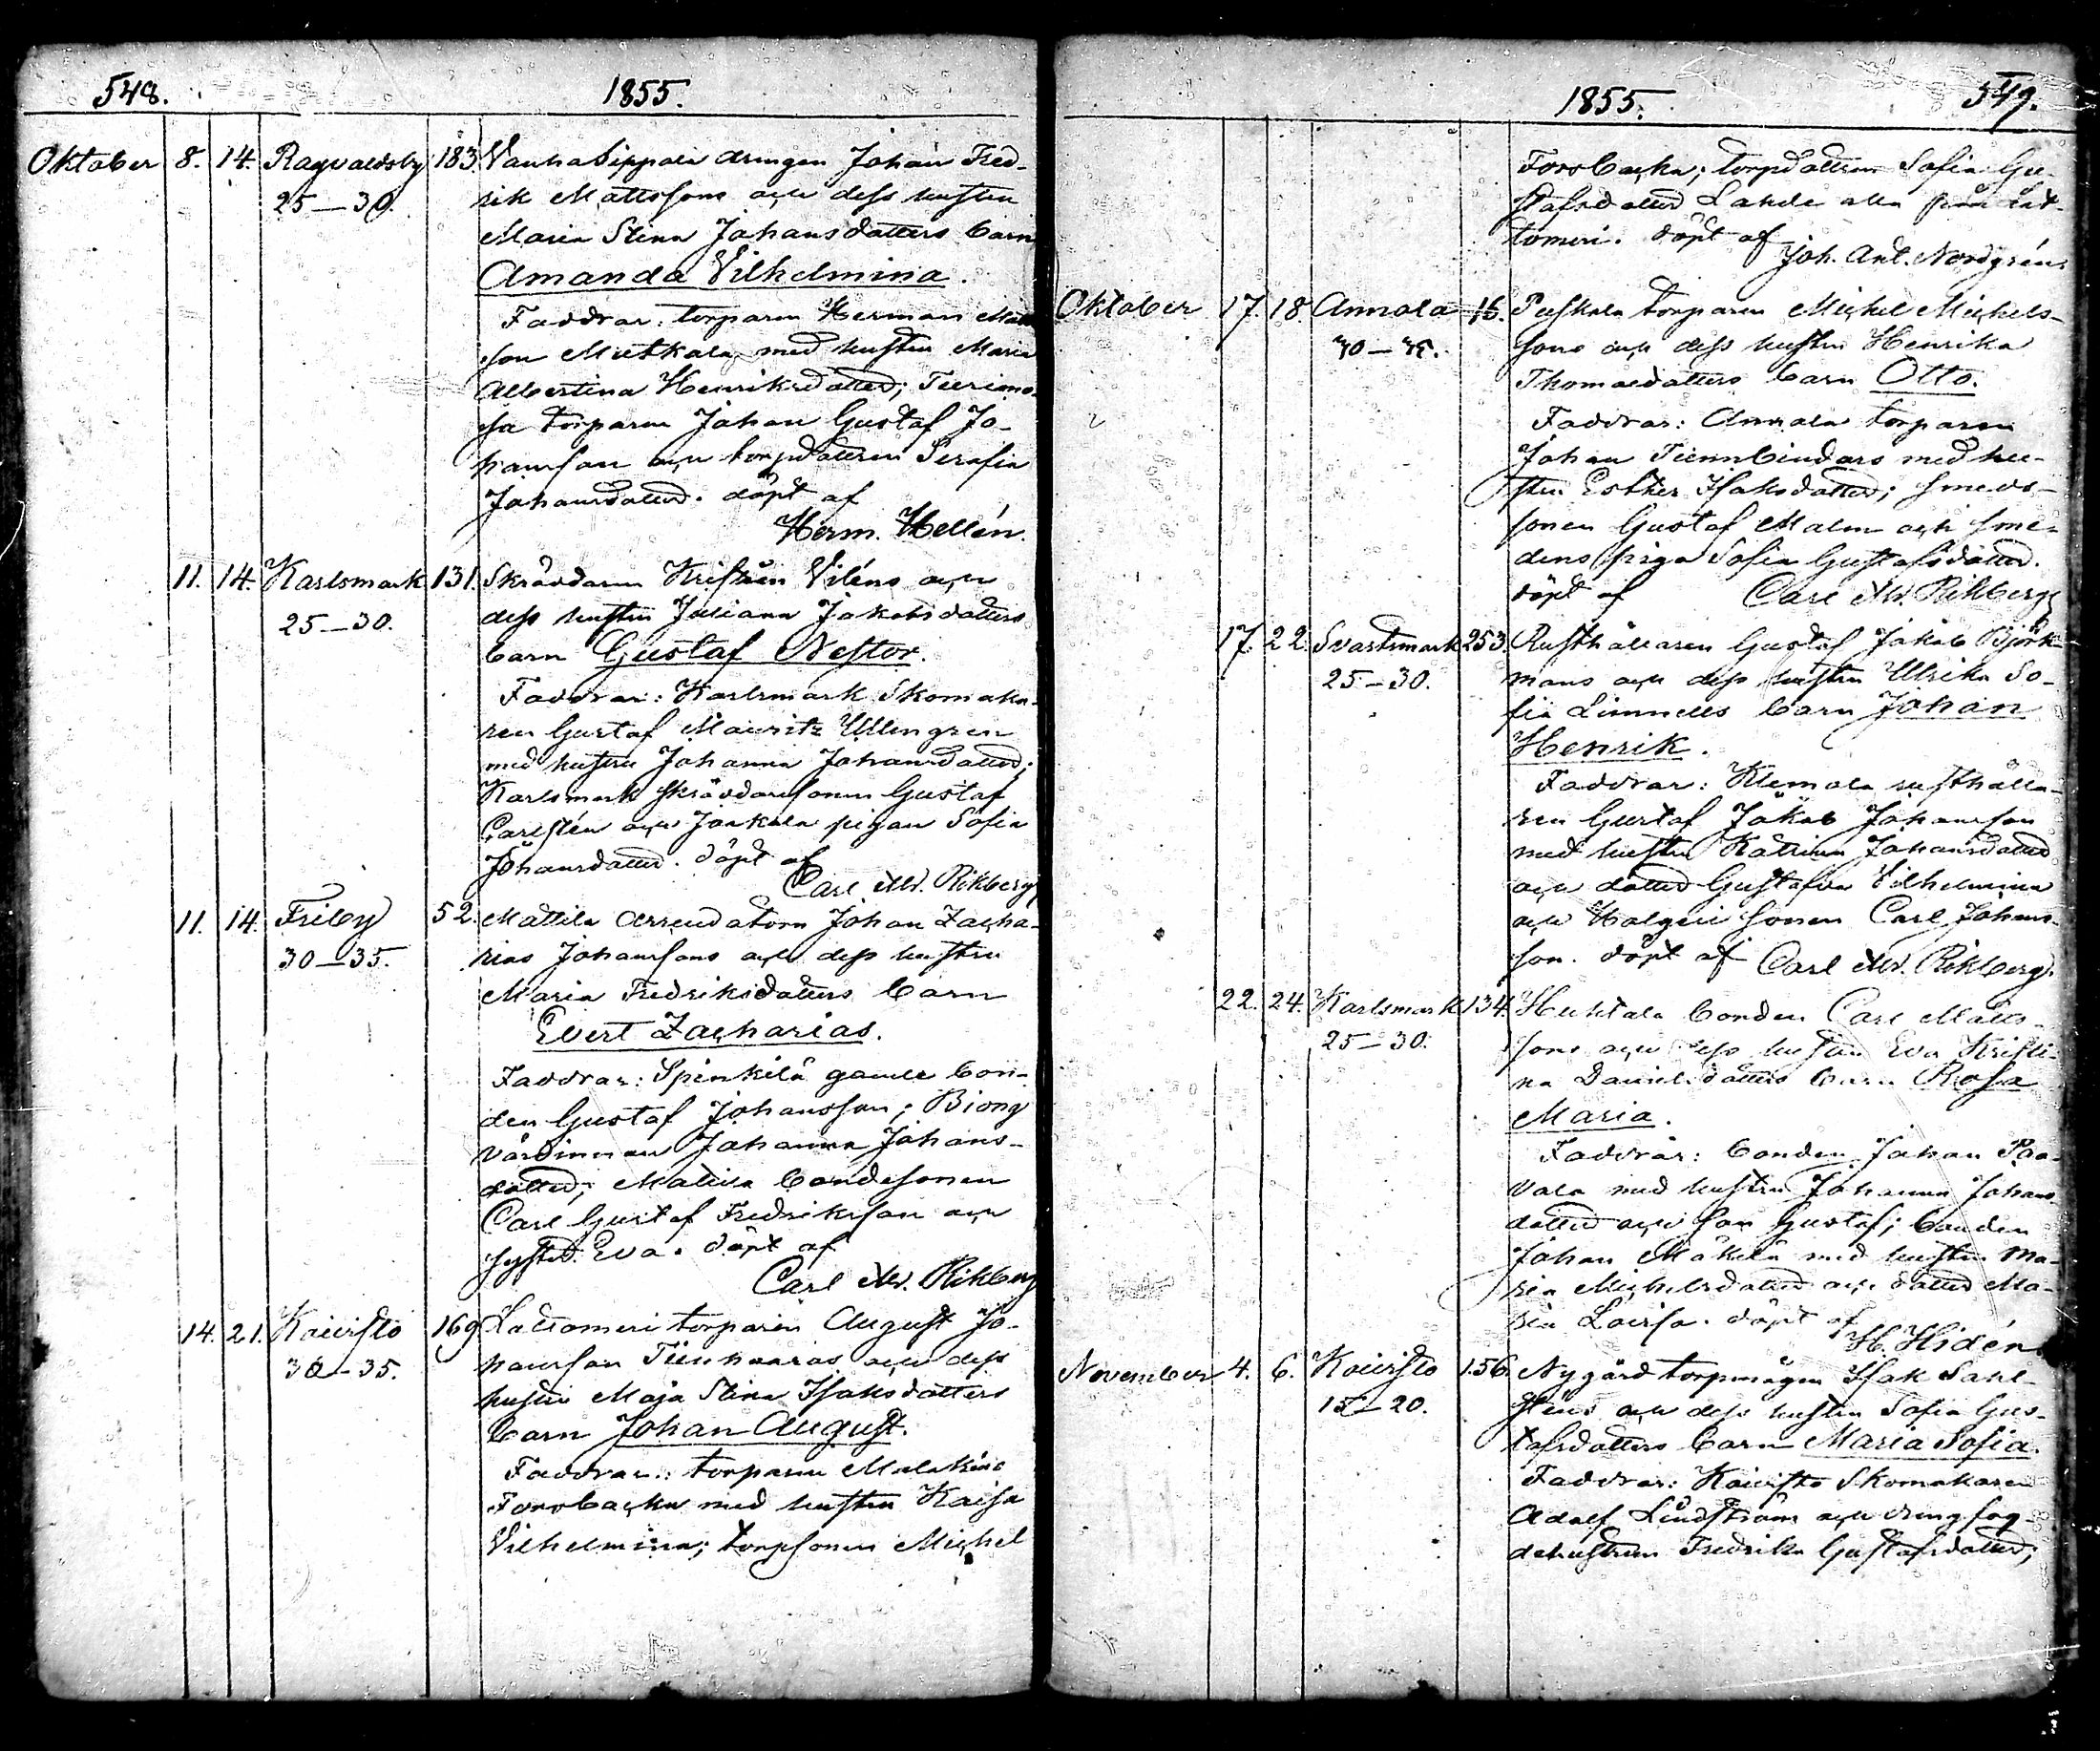 548.
1855.
Oktober 8. 14. Ragvaldsby 183. Vanhasippala drängen Johan Fred-
25—30. rik Mattssons och dess hustru
Maria Stina Johansdotters barn
Amanda Vilhelmina.
Faddrar: torparen Herman Matts
son Mutkala med hustru Maria
Albertina Henriksdotter;
torparen Johan Gustaf Jo-
hansson och torpdottren Serafia
Johansdotter. döpt af
Herm. Hellén.
11. 14. Karlsmark 131. Skräddaren Kristian Viléns och
25—30. dess hustru Juliana Jakobsdotters
barn Gustaf Nestor.
Faddrar: Karlsmark Skomaka-
ren Gustaf Mauritz Ullengren
med hustru Johanna Johansdotter;
Karlsmark skräddaresonen Gustaf
Carlstén och Jaakola pigan Sofia
Johansdotter. döpt af
Carl Rikberg
11. 14. Friby 52. Mattila Arrendatorn Johan Zacha-
30—35. rias Johanssons och dess hustru
Maria Fredriksdotters barn
Evert Zacharias.
Faddrar: Spinkilä gamle bon-
den Gustaf Johansson; Biong
värdinnan Johanna Johans-
dotter; Mattila bondesonen
Carl Gustaf Fredriksson och
syster Eva. döpt af
Carl Rikberg
14. 21. Koivisto 169. Lattomeri torparen August Jo-
30—35. hansson Tiinhaaras och dess
hustru Maja Stina Isaksdotters
barn Johan August.
Faddrar: torparen Malakias
Forsbacka med hustru Kaisa
Vilhelmina; torpsonen Michel
1855.
549.
Forsbacka; torpdottren Sofia Gu-
stafsdotter Lahde alla från Lat-
tomeri. döpt af
Joh. Ant. Nordgrén.
Oktober 17. 18. Annola 16. Puskala torparen Michel Michels-
30—35. sons och dess hustru Henrika
Thomasdotters barn Otto.
Faddrar: Annola torparen
Johan med hu-
stru Esther Isaksdotter; smeds-
sonen Gustaf Malm och sme-
dens piga Sofia Gustafsdotter.
döpt af Carl Rikberg
17. 22. Svartsmark 253. Rusthållaren Gustaf Jakob Björk-
25—30. mans och dess hustru Ulrika So-
fia Linnells barn Johan
Henrik.
Faddrar: Klemola rusthålla-
ren Gustaf Jakob Johansson
med hustru Katrina Johansdotter
och dotter Gustafva Vilhelmina
och Halgeri sonen Carl Johans-
son. döpt af Carl Rikberg.
22. 24. Karlsmark 134. Huhtala bonden Carl Matts-
25—30. sons och dess hustru Eva Kristi-
na Danielsdotters barn Rosa
Maria.
Faddrar: bonden Johan Paa-
vala med hustru Johanna Johans
dotter och son Gustaf; bonden
Johan Mäkelä med hustru Ma-
ria Michelsdotter och dotter Ma-
ria Lovisa. döpt af
H. Hidén.
November 4. 6. Koivisto 156. Nygård torpmågen Isak Sahl-
15—20. sténs och dess hustru Sofia Gus-
tafsdotters barn Maria Sofia.
Faddrar: Koivisto Skomakaren
Adolf Lindström och drängfog-
dehustrun Fredrika Gustafsdotter;